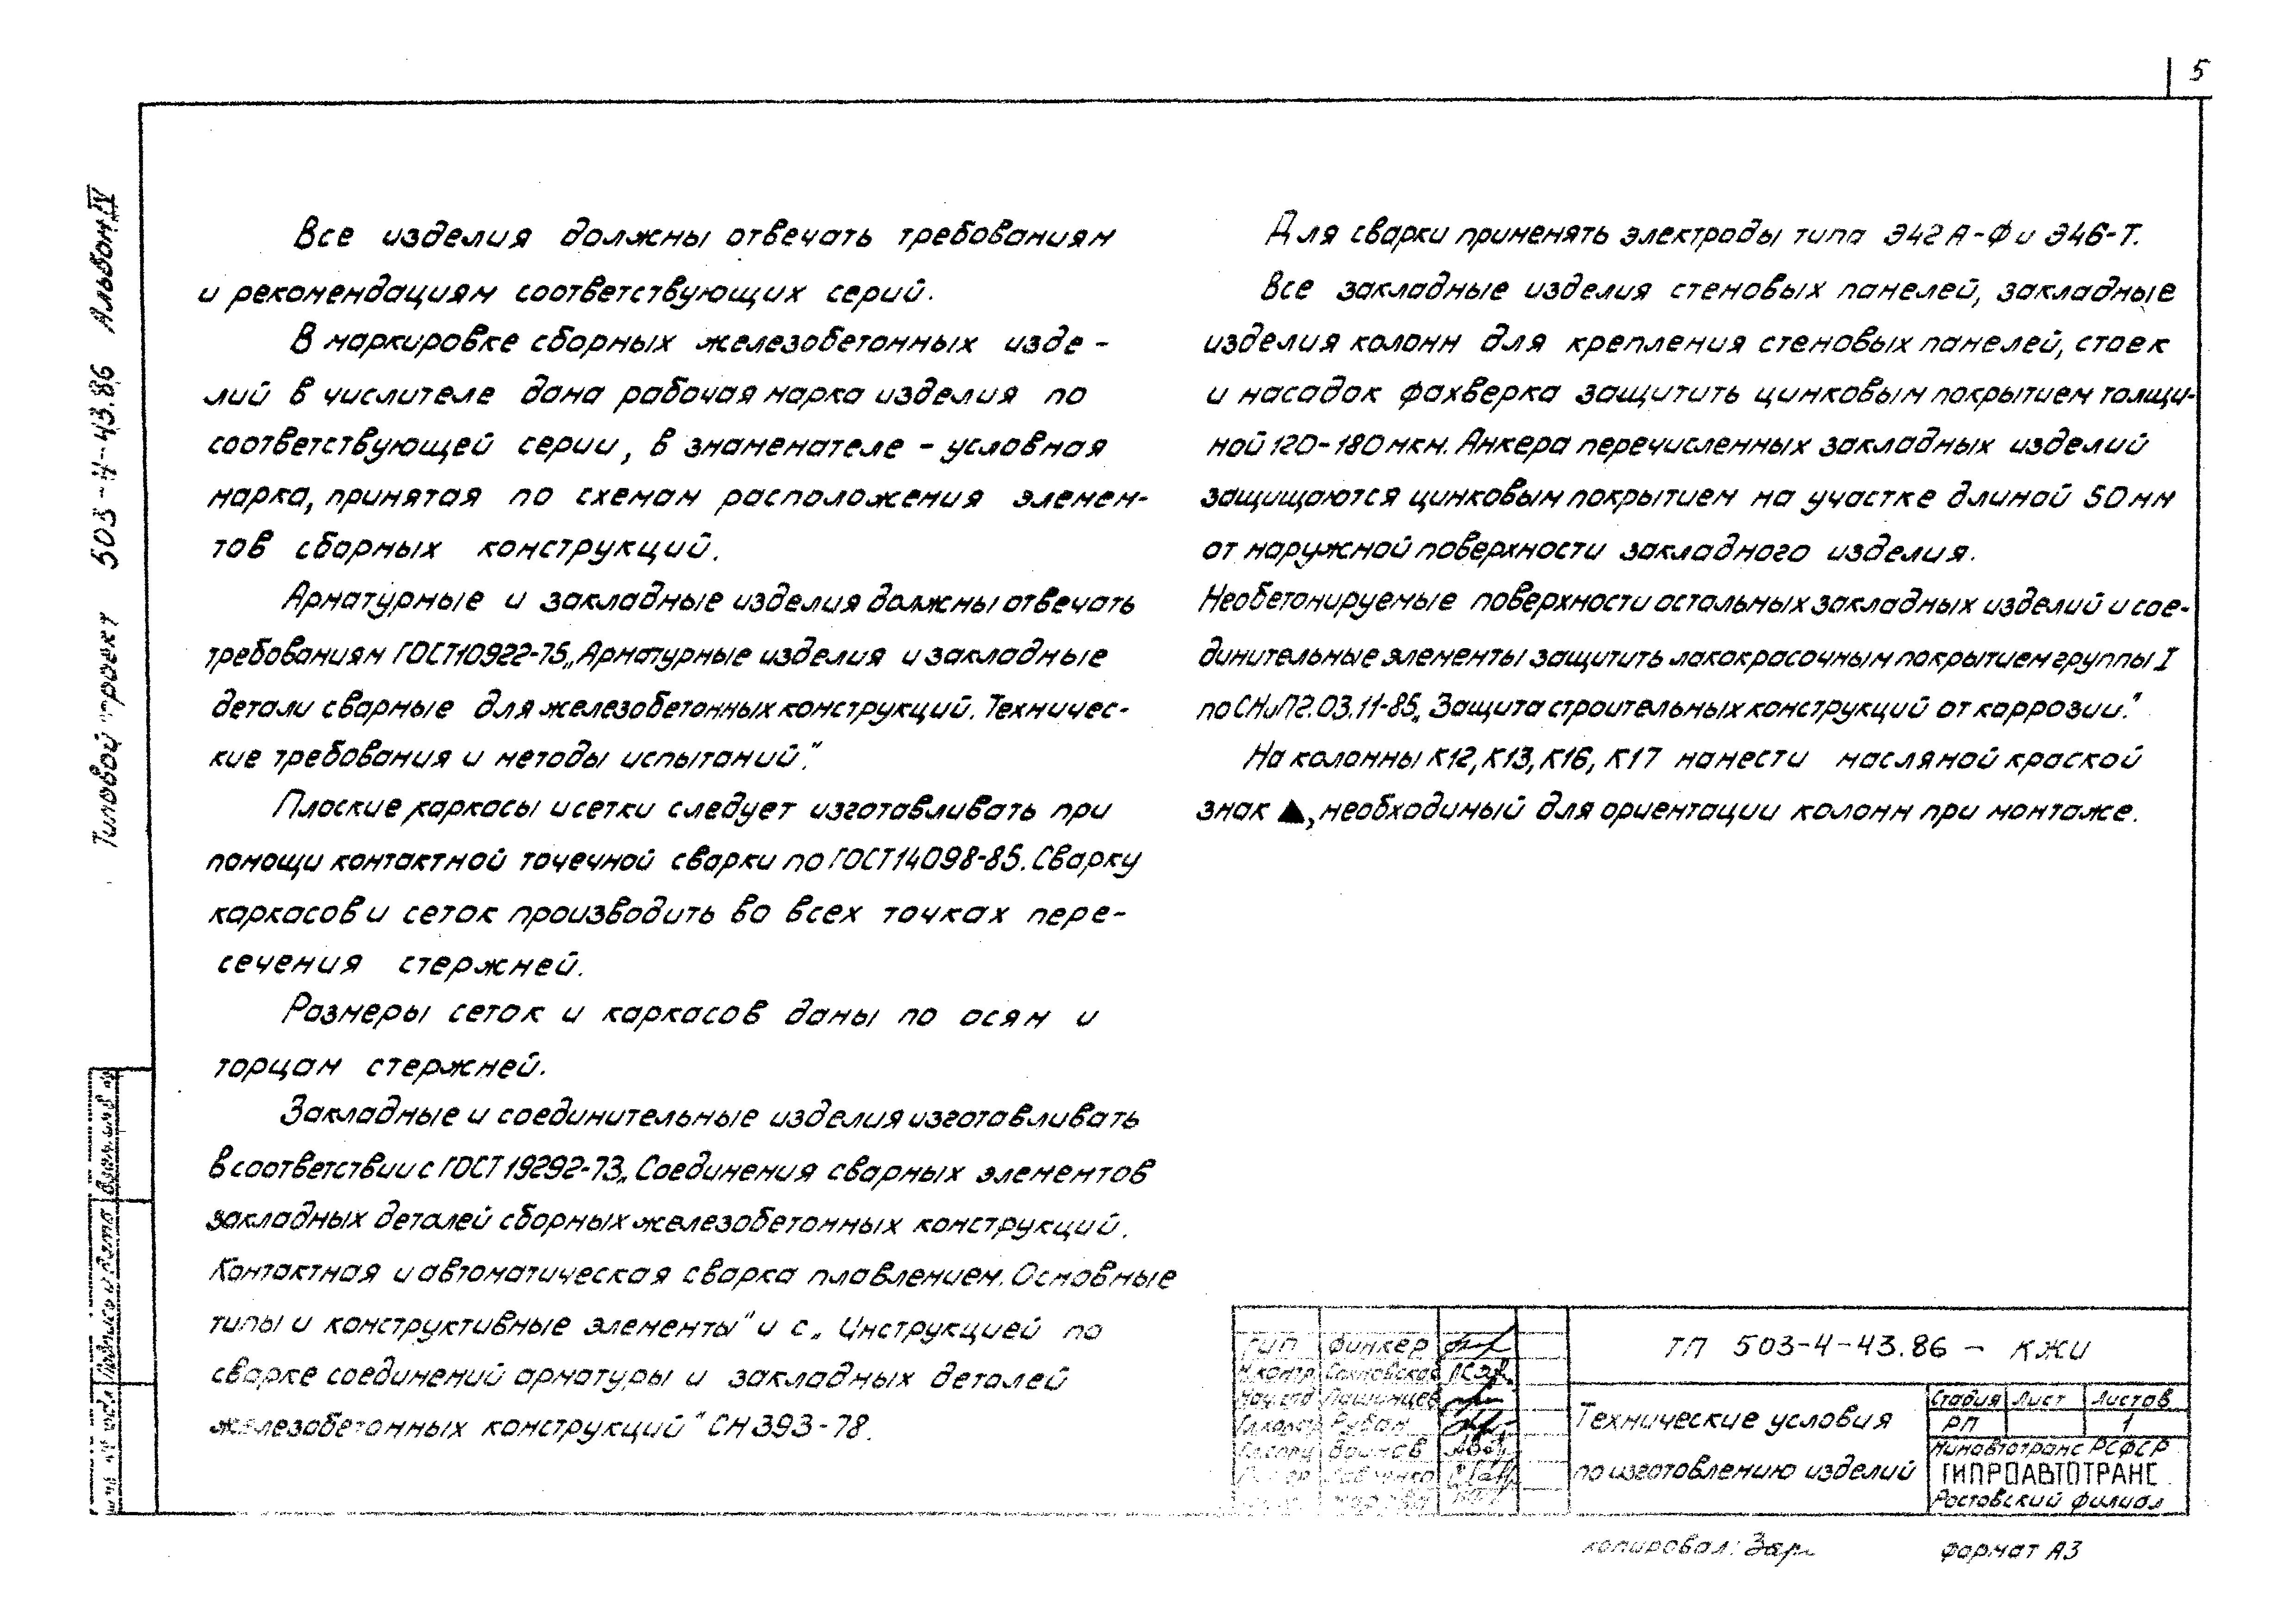 5
Типовой проект 503-4-43.86 Альбом IV
Все изделия должны отвечать требованиям
и рекомендациям соответствующих серий.
В маркировке сборных железобетонных изде-
лий в числителе дана рабочая марка изделия по
соответствующей серии, в знаменателе - условная
марка, принятая по схемам расположения элемен-
тов сборных конструкций.
Арматурные и закладные изделия должны отвечать
требованиям ГОСТ 10922-75 „Арматурные изделия и закладные
детали сварные для железобетонных конструкций. Техничес-
кие требования и методы испытаний."
Плоские каркасы и сетки следует изготавливать при
помощи контактной точечной сварки по ГОСТ 14098-85. Сварку
каркасов и сеток производить во всех точках пере-
сечения стержней.
Размеры сеток и каркасов даны по осям и
торцам стержней.
Закладные и соединительные изделия изготавливать
в соответствии с ГОСТ 19292-73 „Соединения сварных элементов
закладных деталей сборных железобетонных конструкций.
Контактная и автоматическая сварка плавлением. Основные
типы и конструктивные элементы" и с „Инструкцией по
сварке соединений арматуры и закладных деталей
железобетонных конструкций" СН 393-78.
Для сварки применять электроды типа Э42А-Ф и Э46-Т.
Все закладные изделия стеновых панелей, закладные
изделия колонн для крепления стеновых панелей, стоек
и насадок фахверка защитить цинковым покрытием толщи-
ной 120-180 мкм. Анкера перечисленных закладных изделий
защищаются цинковым покрытием на участке длиной 50 мм
от наружной поверхности закладного изделия.
Необетонируемые поверхности остальных закладных изделий и сое-
динительные элементы защитить лакокрасочным покрытием группы I
по СНиП 2.03.11-85 „Защита строительных конструкций от коррозии."
На колонны К12, К13, К16, К17 нанести масляной краской
знак ▲, необходимый для ориентации колонн при монтаже.
ТП 503-4-43.86 - КЖИ
ГИП Финкер
Н.контр.
Нач.отд Пашинцев
Рубан
Технические условия
по изготовлению изделий
Стадия Лист Листов
РП 1
Минавтотранс РСФСР
ГИПРОАВТОТРАНС
Ростовский филиал
Взам.инв.№
Подпись и дата
копировал: Зар
формат А3